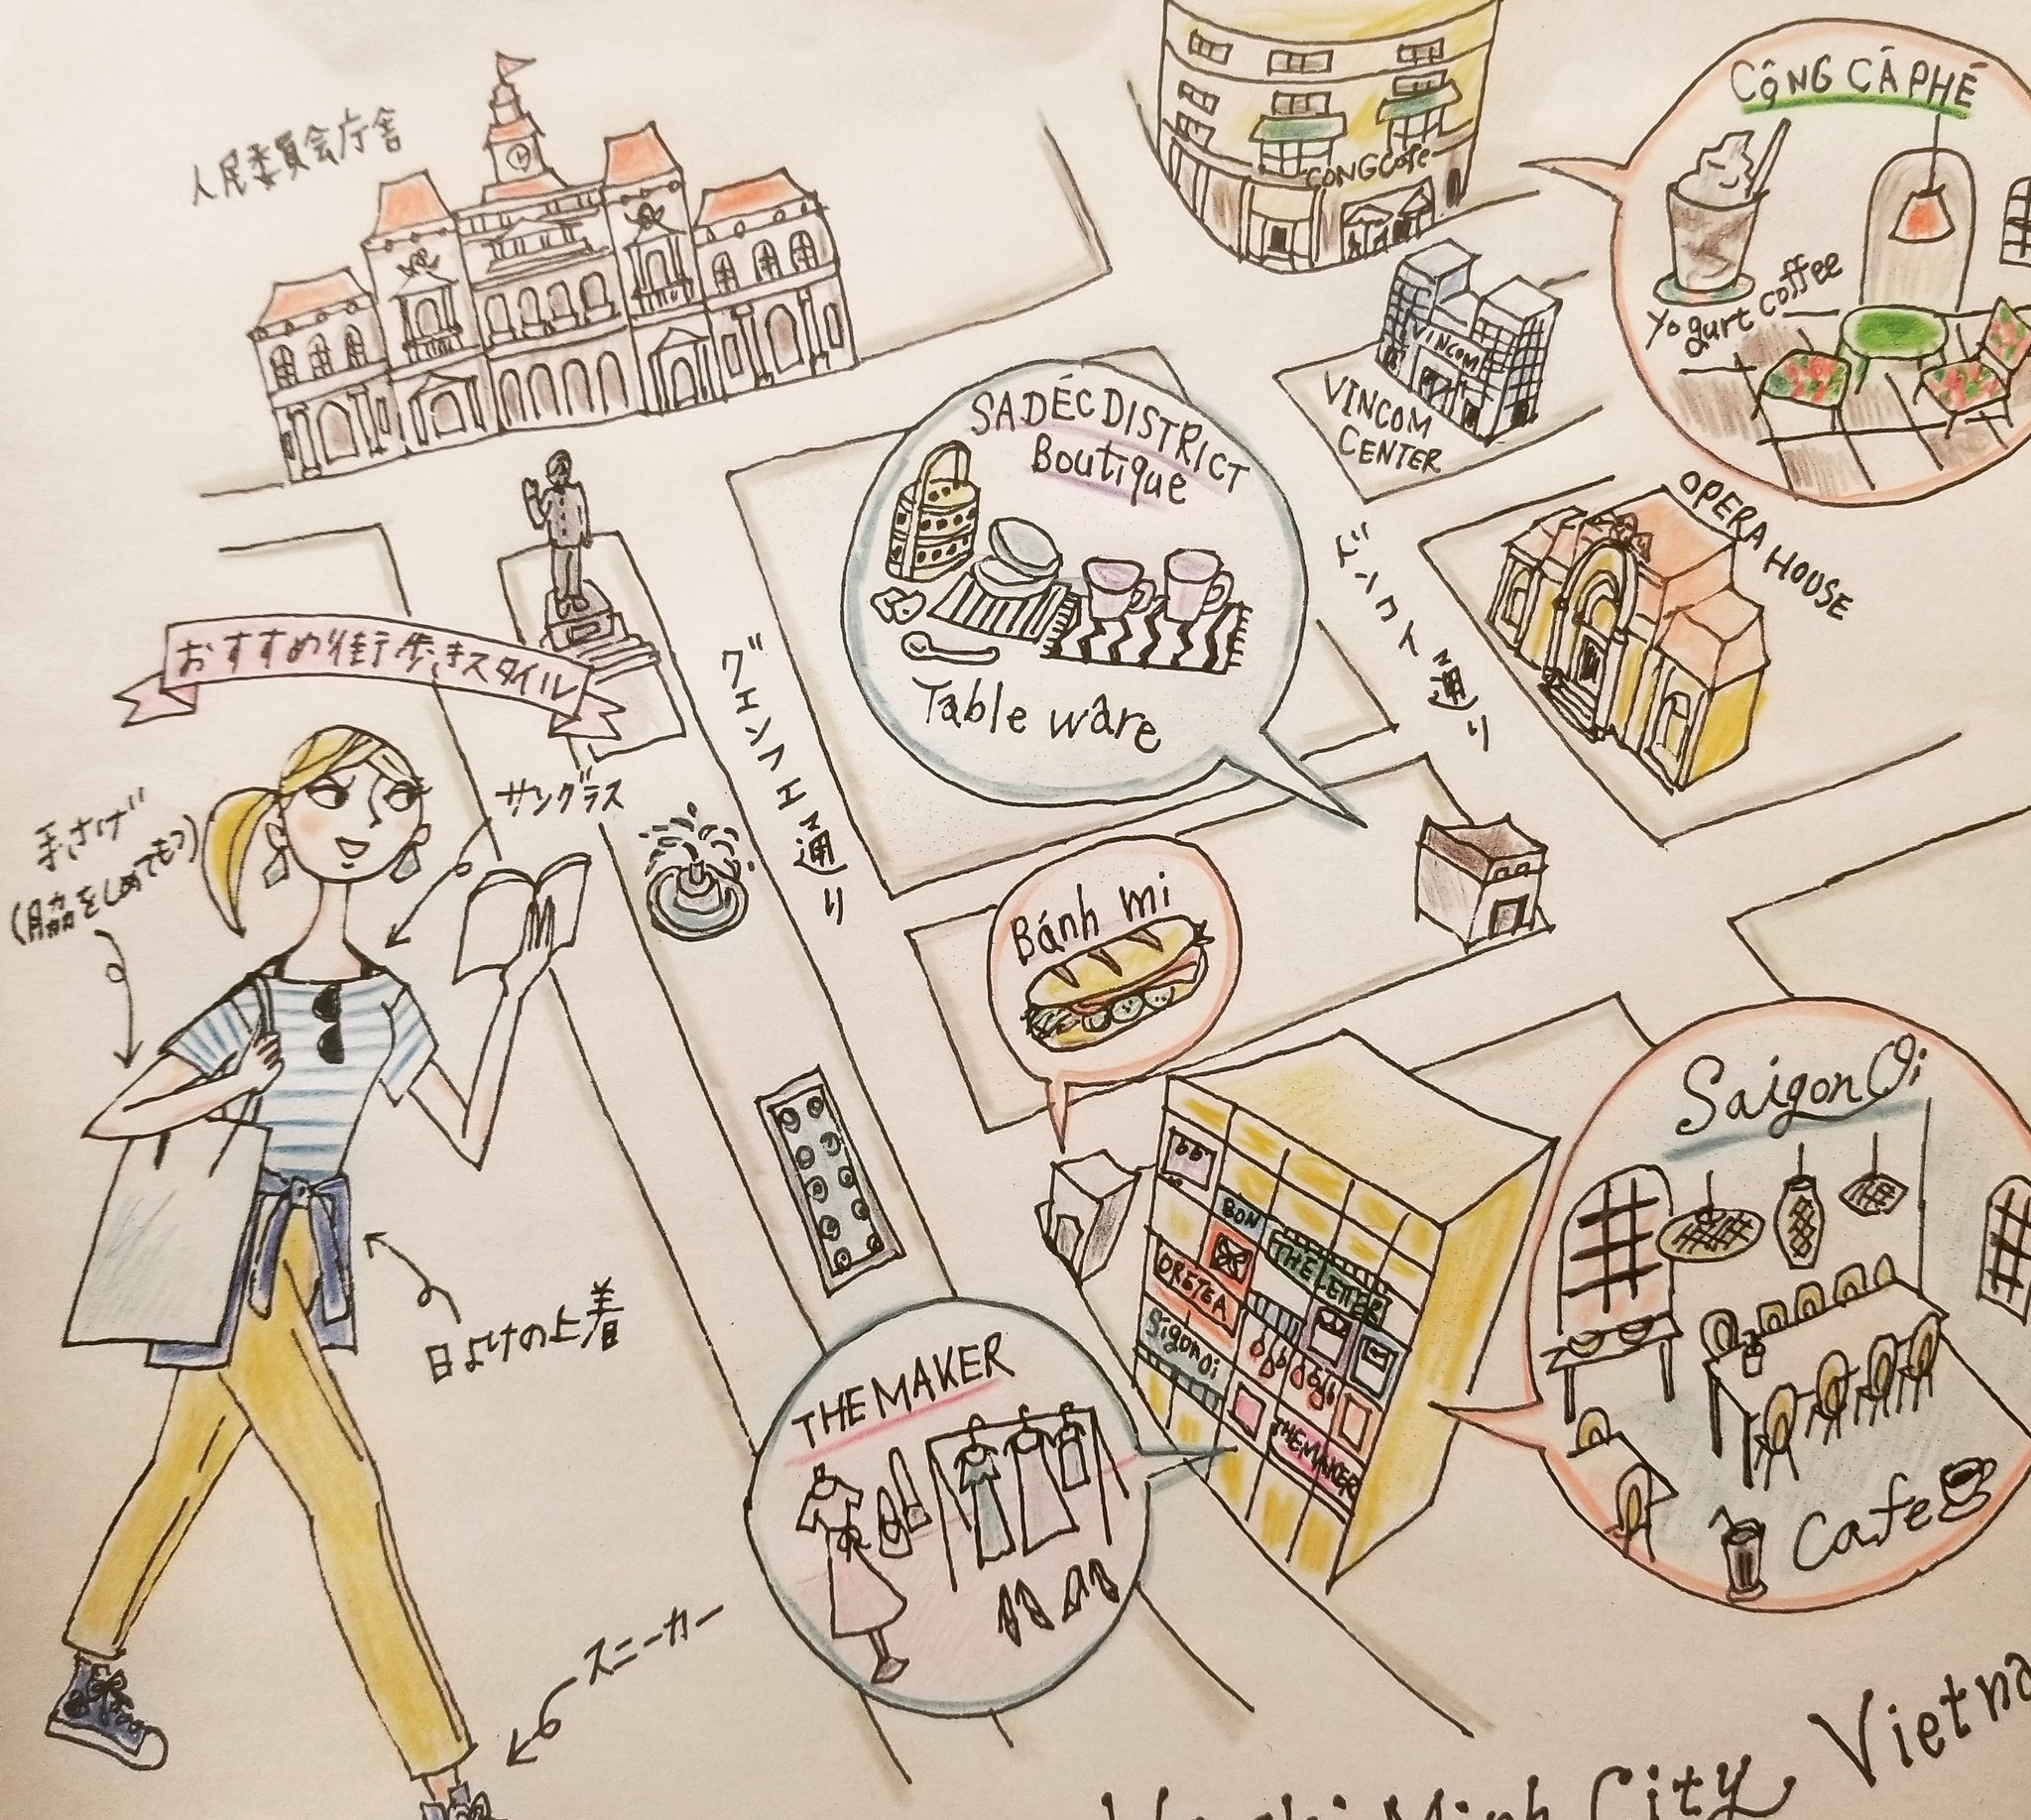 人民委員会庁舎
CONG Cafe
CỘNG CÀ PHÊ
Yogurt coffee
VINCOM
VINCOM
CENTER
SADÉC DISTRICT
Boutique
Table ware
OPERA HOUSE
ドンコイ通り
グエンフエ通り
おすすめ街歩きスタイル
サングラス
手さげ
(脇をしめてもつ)
Bánh mi
日よけの上着
スニーカー
THE MAKER
BON
THÉ LETTER
ORÉTEA
Sigonoi
THE MAKER
Saigon Oi
Cafe
Minh City, Vietna